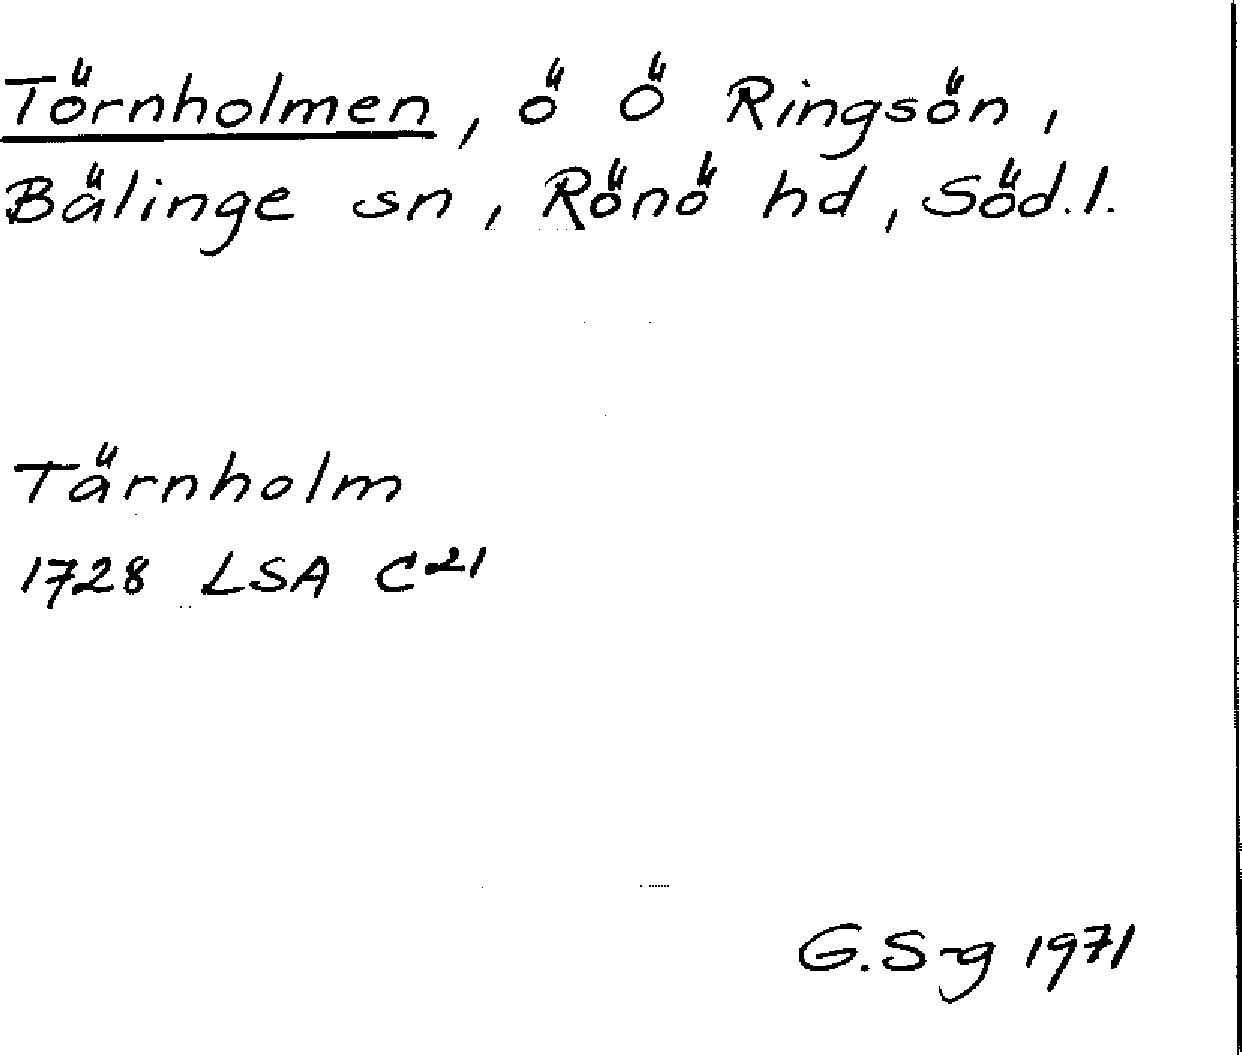 Törnholmen, ö Ö Ringsön,
Bälinge sn, Rönö hd, Söd.l.
Tärnholm
1728 LSA C21
G.S-g 1971